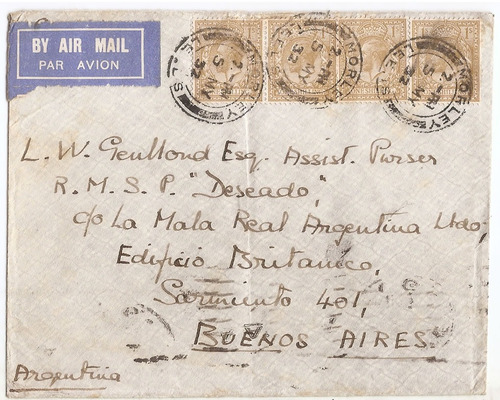 BY AIR MAIL
PAR AVION
MORLEY
LEEDS
MORLEY
LEEDS
MORLEY
LEEDS
L. W. Esq. Assist. Purser
R. M. S. P. "Deseado",
c/o La Mala Real Argentina Ltdo,
Edificio Britanico,
Sarmiento 401,
BUENOS AIRES
Argentina